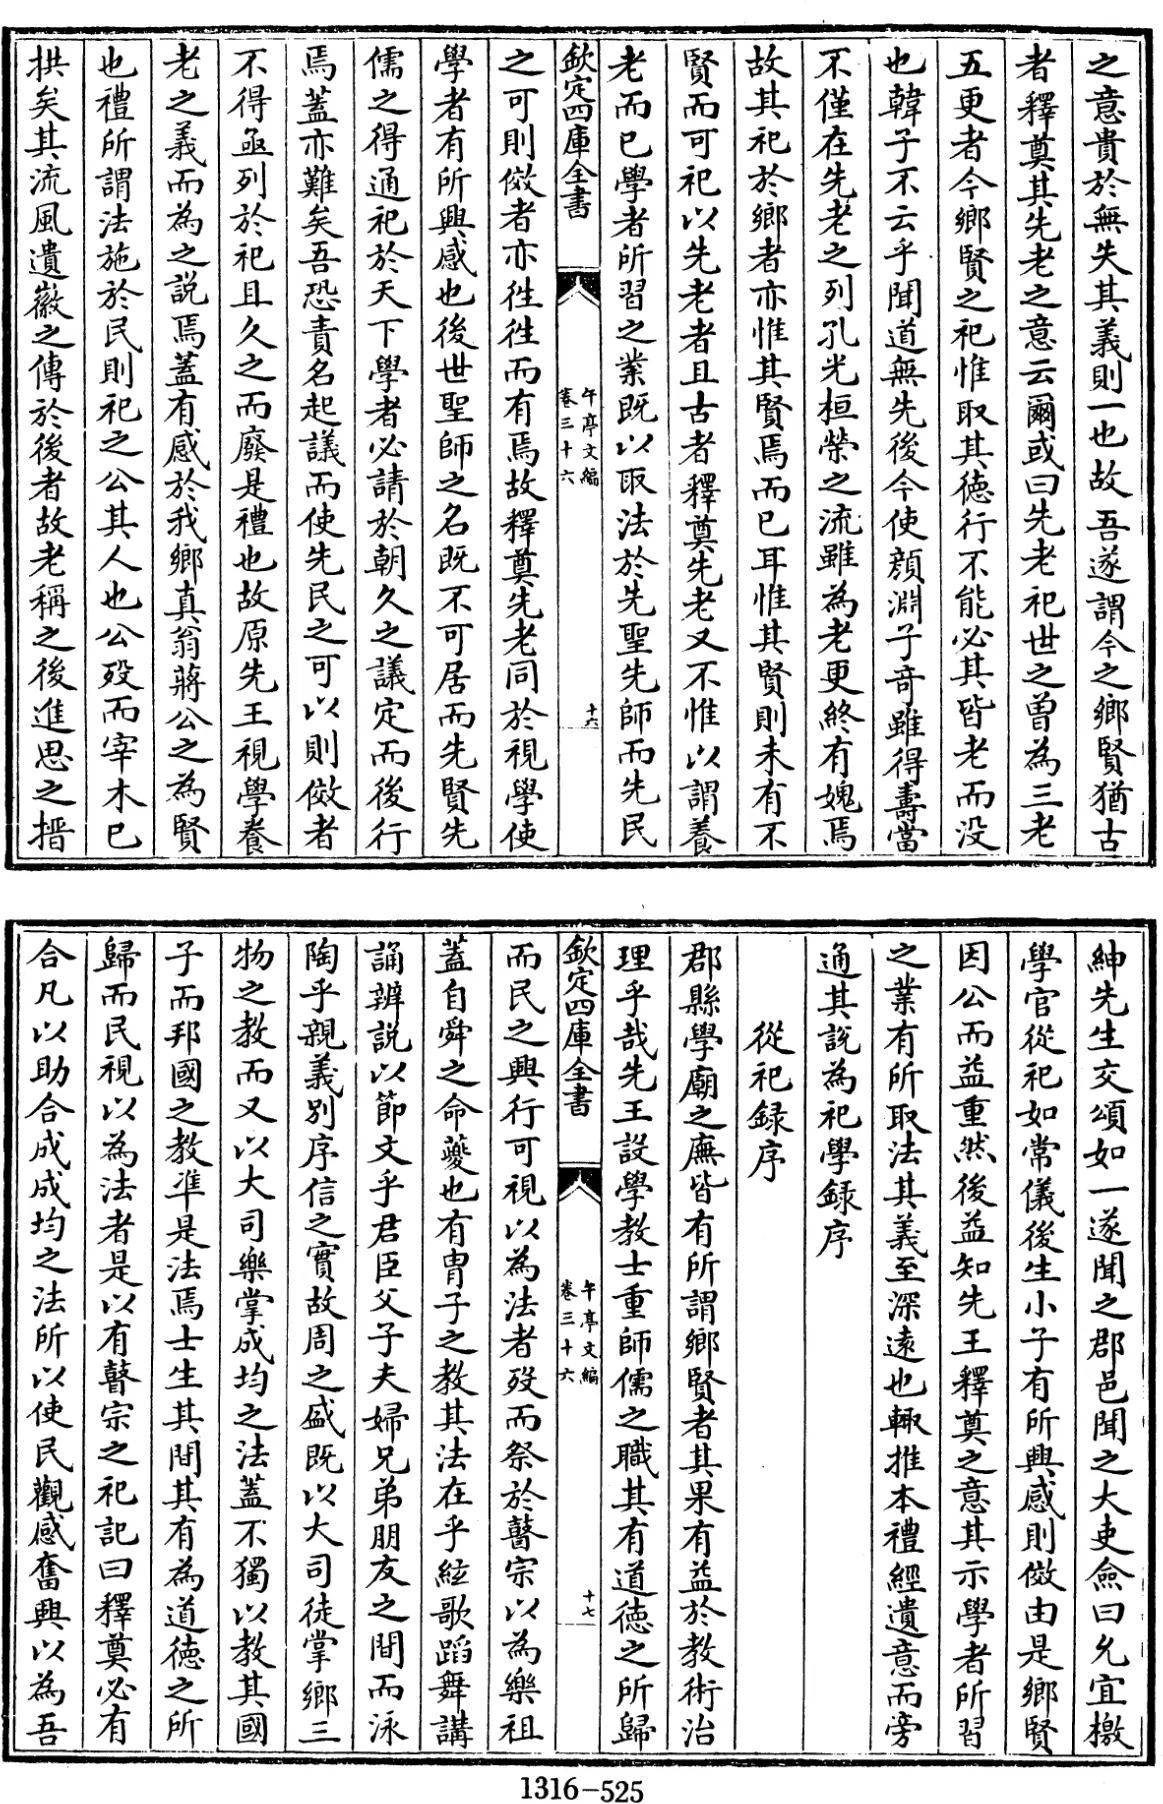 之意貴於無失其義則一也故吾遂謂今之鄉賢猶古
者釋奠其先老之意云爾或曰先老祀世之曾為三老
五更者今鄉賢之祀惟取其德行不能必其皆老而没
也韓子不云乎聞道無先後今使顔淵子奇雖得壽當
不僅在先老之列孔光桓榮之流雖為老更終有媿焉
故其祀於鄉者亦惟其賢焉而已耳惟其賢則未有不
賢而可祀以先老者且古者釋奠先老又不惟以謂養
老而已學者所習之業既以取法於先聖先師而先民
欽定四庫全書
午亭文編
卷三十六
十六
之可則傚者亦徃徃而有焉故釋奠先老同於視學使
學者有所興感也後世聖師之名既不可居而先賢先
儒之得通祀於天下學者必請於朝久之議定而後行
焉蓋亦難矣吾恐責名起議而使先民之可以則傚者
不得亟列於祀且久之而廢是禮也故原先王視學養
老之義而為之説焉蓋有感於我鄉真翁蔣公之為賢
也禮所謂法施於民則祀之公其人也公殁而宰木已
拱矣其流風遺徽之傳於後者故老稱之後進思之搢
紳先生交頌如一遂聞之郡邑聞之大吏僉曰允宜檄
學官從祀如常儀後生小子有所興感則傚由是鄉賢
因公而益重然後益知先王釋奠之意其示學者所習
之業有所取法其義至深遠也輙推本禮經遺意而旁
通其説為祀學録序
從祀録序
郡縣學廟之廡皆有所謂鄉賢者其果有益於教術治
理乎哉先王設學教士重師儒之職其有道德之所歸
欽定四庫全書
午亭文編
卷三十六
十七
而民之興行可視以為法者殁而祭於瞽宗以為樂祖
蓋自舜之命夔也有胄子之教其法在乎絃歌蹈舞講
誦辨説以節文乎君臣父子夫婦兄弟朋友之間而泳
陶乎親義别序信之實故周之盛既以大司徒掌鄉三
物之教而又以大司樂掌成均之法蓋不獨以教其國
子而邦國之教準是法焉士生其間其有為道德之所
歸而民視以為法者是以有瞽宗之祀記曰釋奠必有
合凡以助合成成均之法所以使民觀感奮興以為吾
1316-525